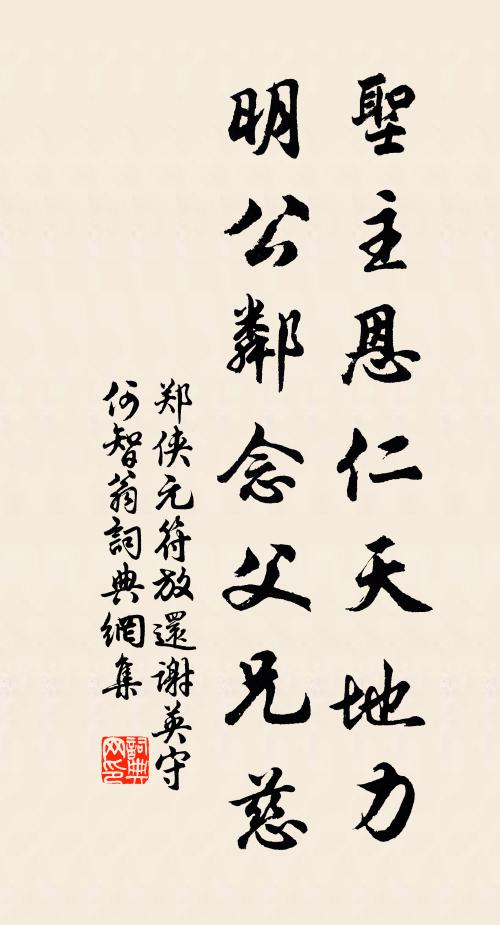 聖主恩仁天地力
明公鄰念父兄慈
郑侠元符放還謝英守
何智翁詞典網集
詞典网印